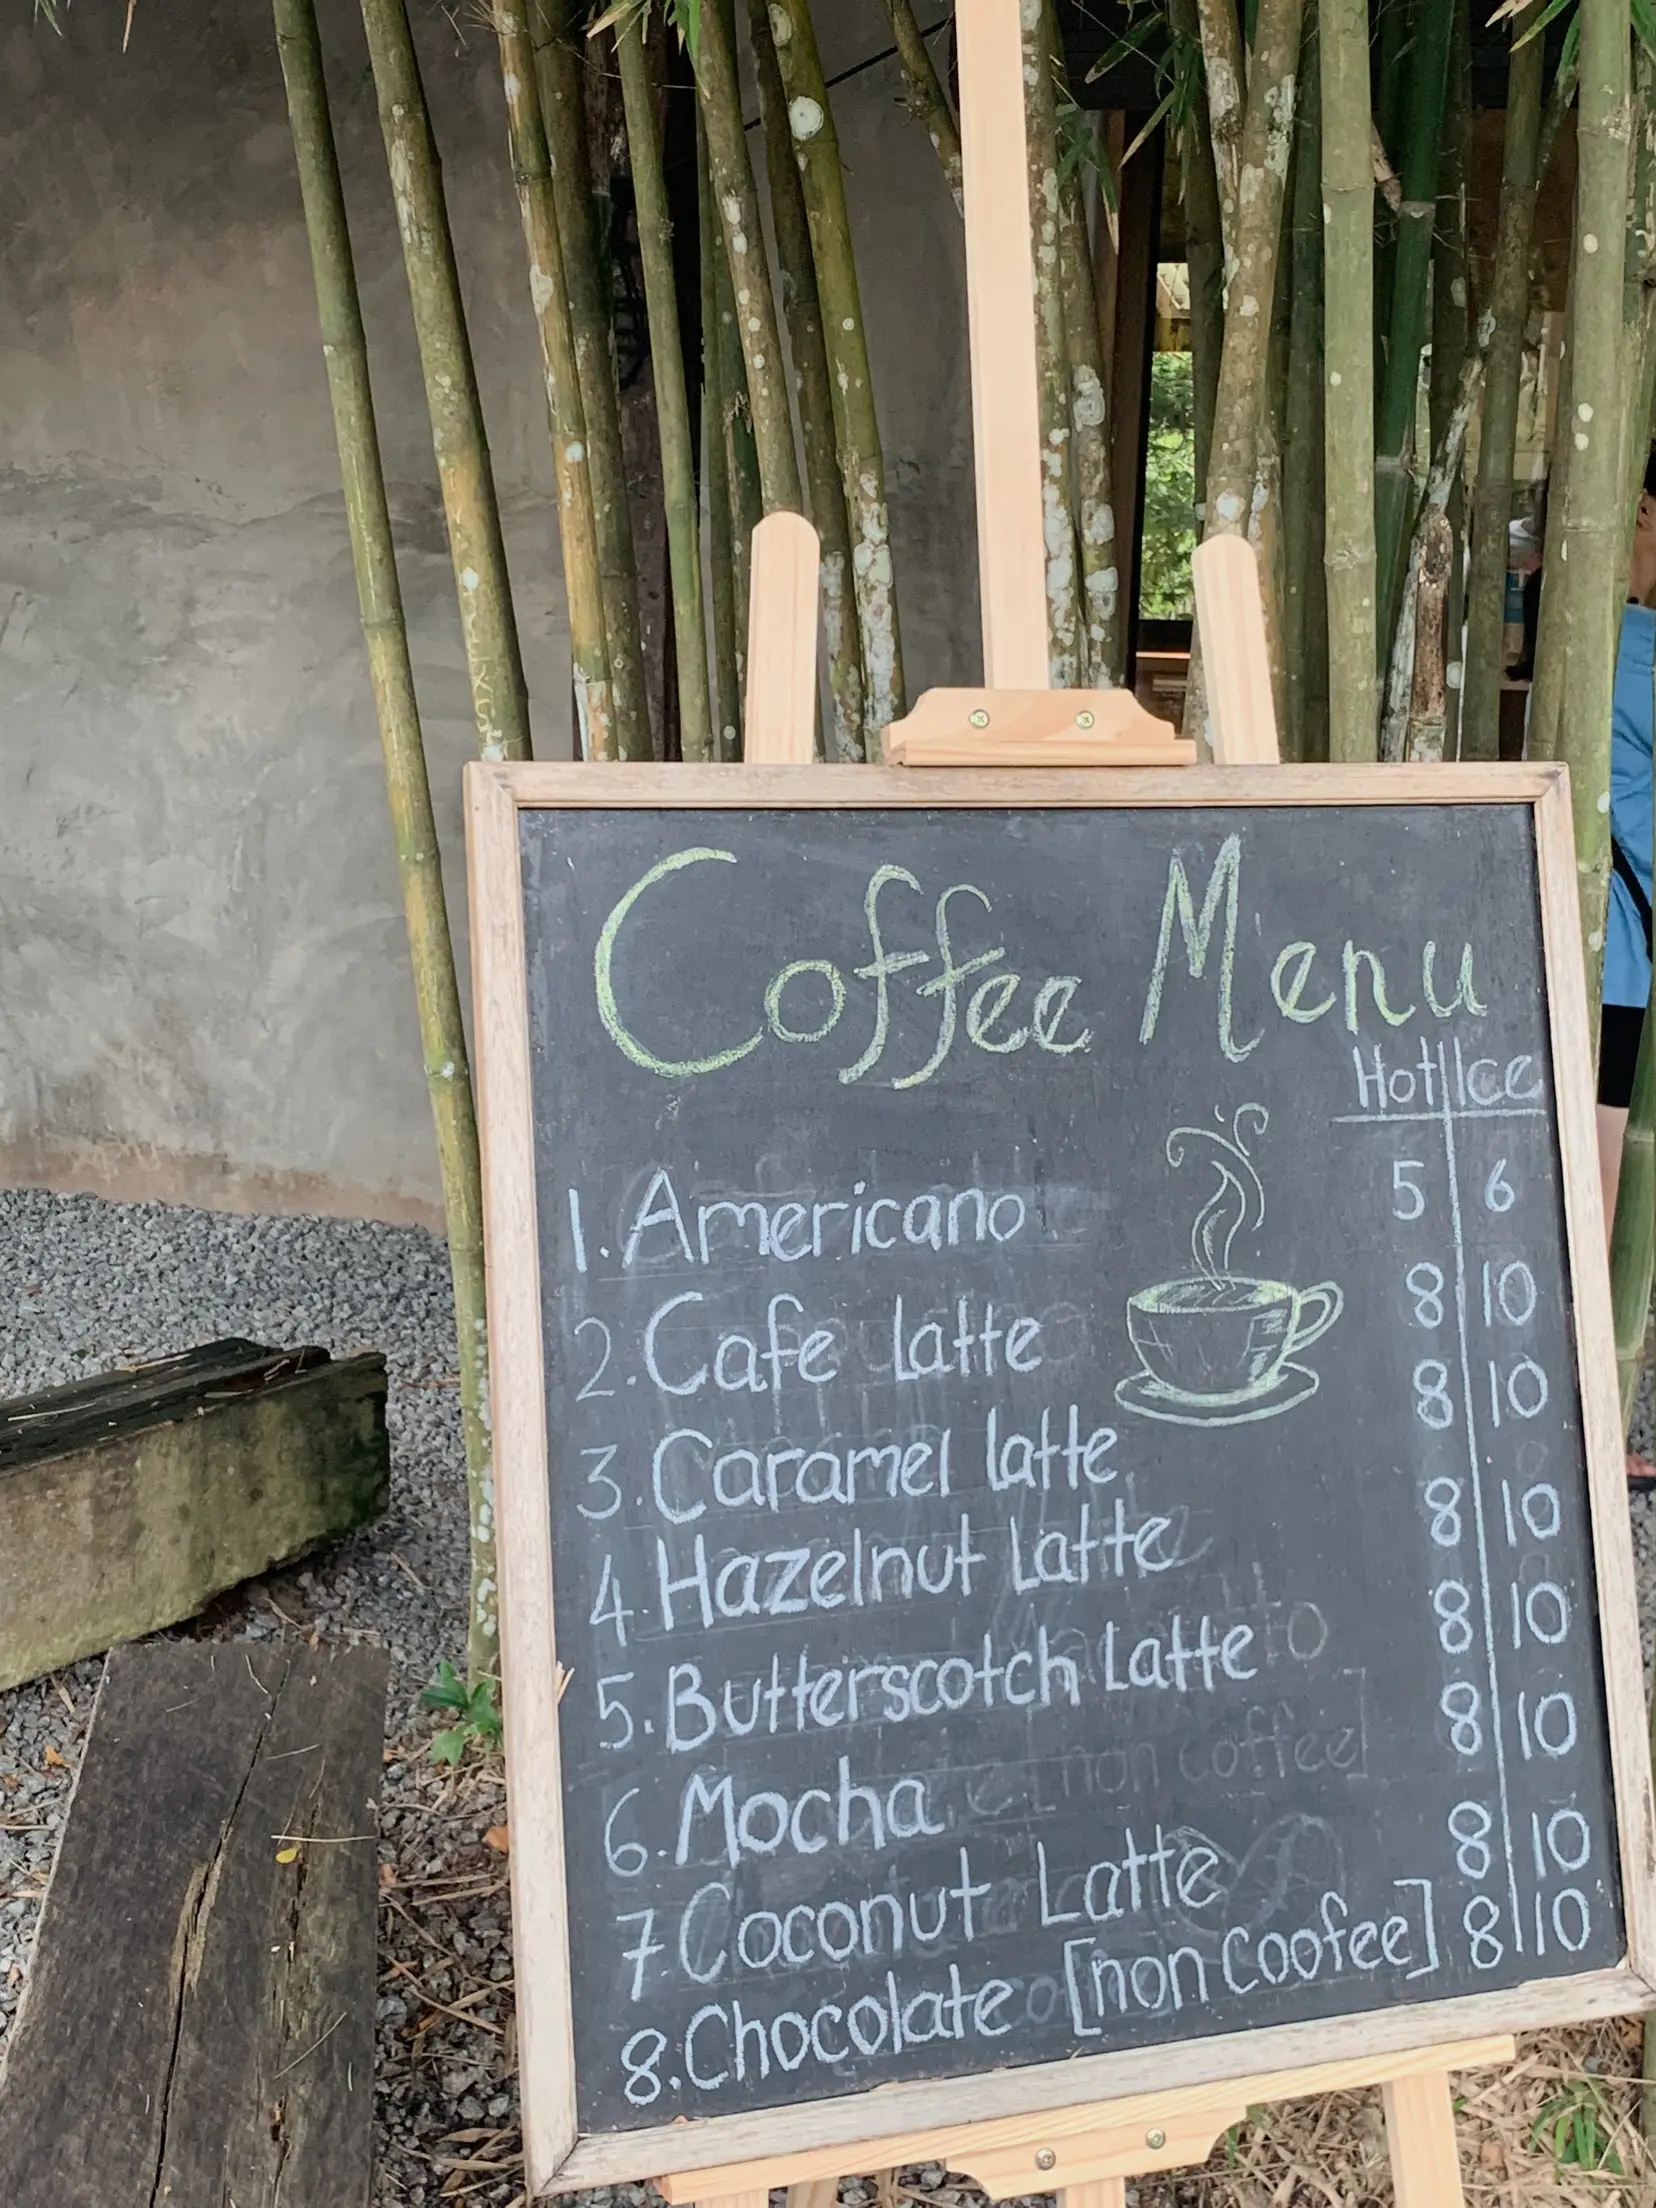 Coffee Menu
Hot Ice
1. Americano 5 6
2. Cafe Latte 8 10
3. Caramel latte 8 10
4. Hazelnut Latte 8 10
5. Butterscotch Latte 8 10
6. Mocha 8 10
7 Coconut Latte 8 10
8. Chocolate [non Coofee] 8 10